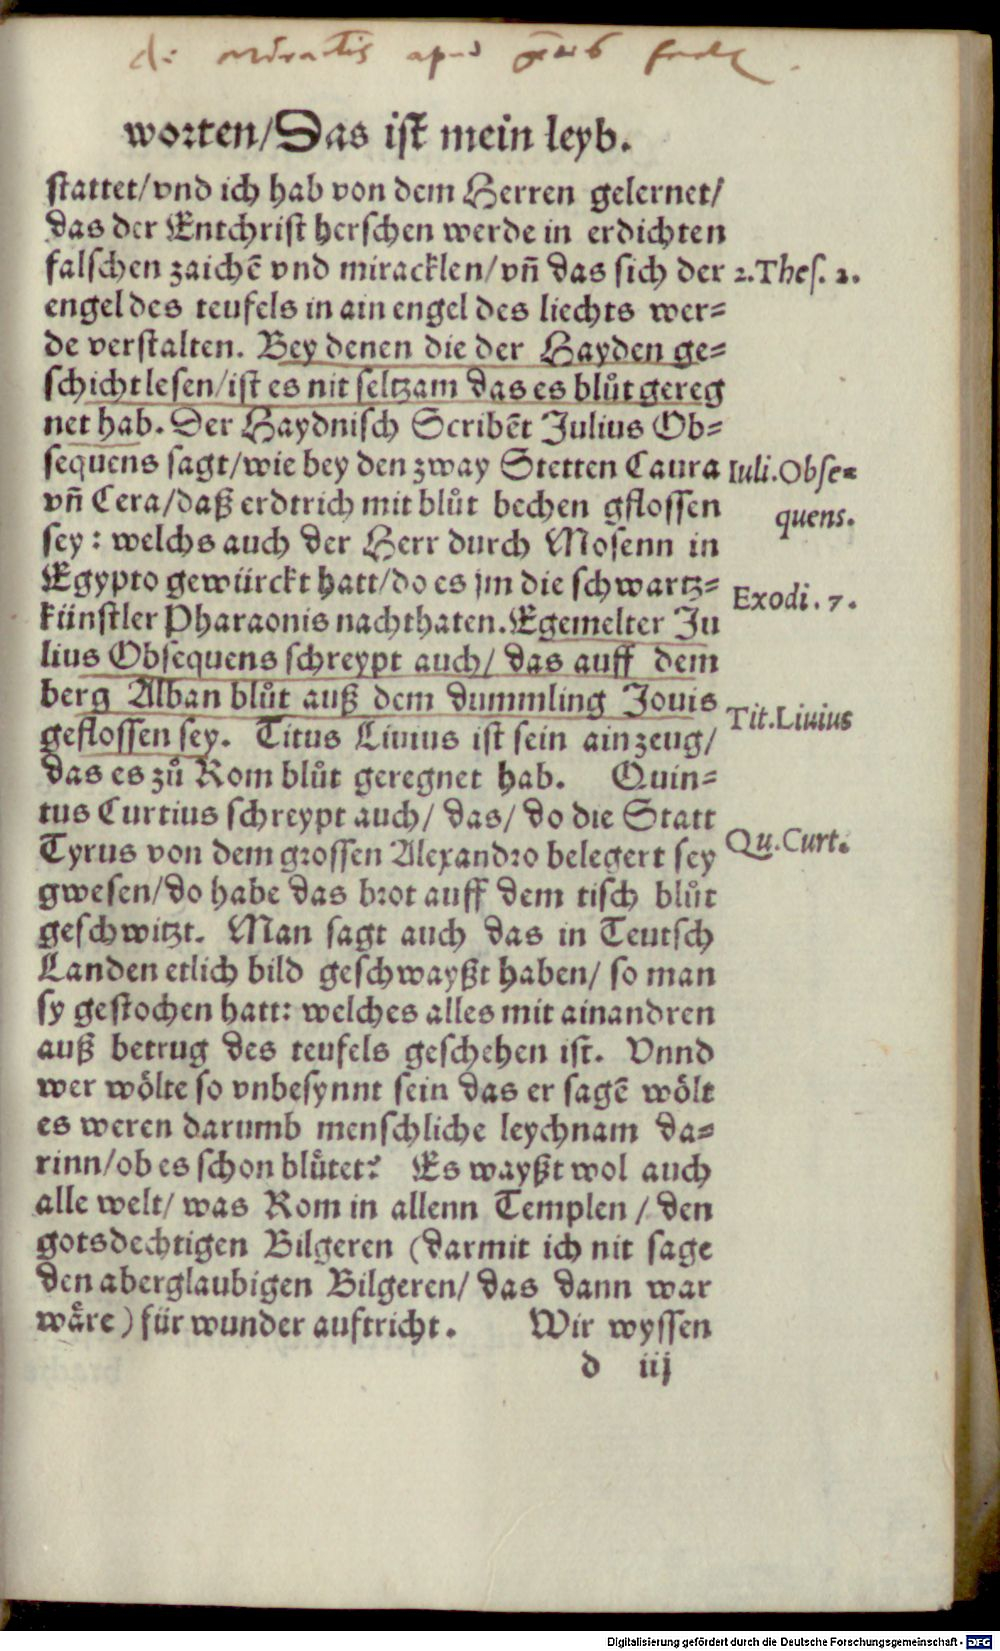 worten/Das ist mein leyb.
stattet/vnd ich hab von dem Herren gelernet/
das der Entchrist herschen werde in erdichten
falschen zaichē vnd miracklen/vn̄ das sich der
2.Thes. 2.
engel des teufels in ain engel des liechts wer=
de verstalten. Bey denen die der Hayden ge=
schicht lesen/ist es nit seltzam das es blůt gereg
net hab. Der Haydnisch Scribēt Julius Ob=
sequens sagt/wie bey den zway Stetten Caura
Iuli.Obse=
quens.
vn̄ Cera/daß erdtrich mit blůt bechen gflossen
sey: welchs auch der Herr durch Mosenn in
Egypto gewürckt hatt/do es jm die schwartz=
Exodi. 7.
künstler Pharaonis nachthaten. Egemelter Ju
lius Obsequens schreypt auch/ das auff dem
berg Alban blůt auß dem dummling Jouis
Tit.Liuius
geflossen sey. Titus Liuius ist sein ain zeug/
das es zů Rom blůt geregnet hab. Quin=
tus Curtius schreypt auch/ das/ do die Statt
Qu.Curt.
Tyrus von dem grossen Alexandro belegert sey
gwesen/do habe das brot auff dem tisch blůt
geschwitzt. Man sagt auch das in Teutsch
Landen etlich bild geschwayßt haben/ so man
sy gestochen hatt: welches alles mit ainandren
auß betrug des teufels geschehen ist. Vnnd
wer wölte so vnbesynnt sein das er sagē wölt
es weren darumb menschliche leychnam da=
rinn/ob es schon blůtet? Es wayßt wol auch
alle welt/ was Rom in allenn Templen / den
gotsdechtigen Bilgeren (darmit ich nit sage
den aberglaubigen Bilgeren/ das dann war
wäre) für wunder auftricht. Wir wyssen
d iij
Digitalisierung gefördert durch die Deutsche Forschungsgemeinschaft - DFG